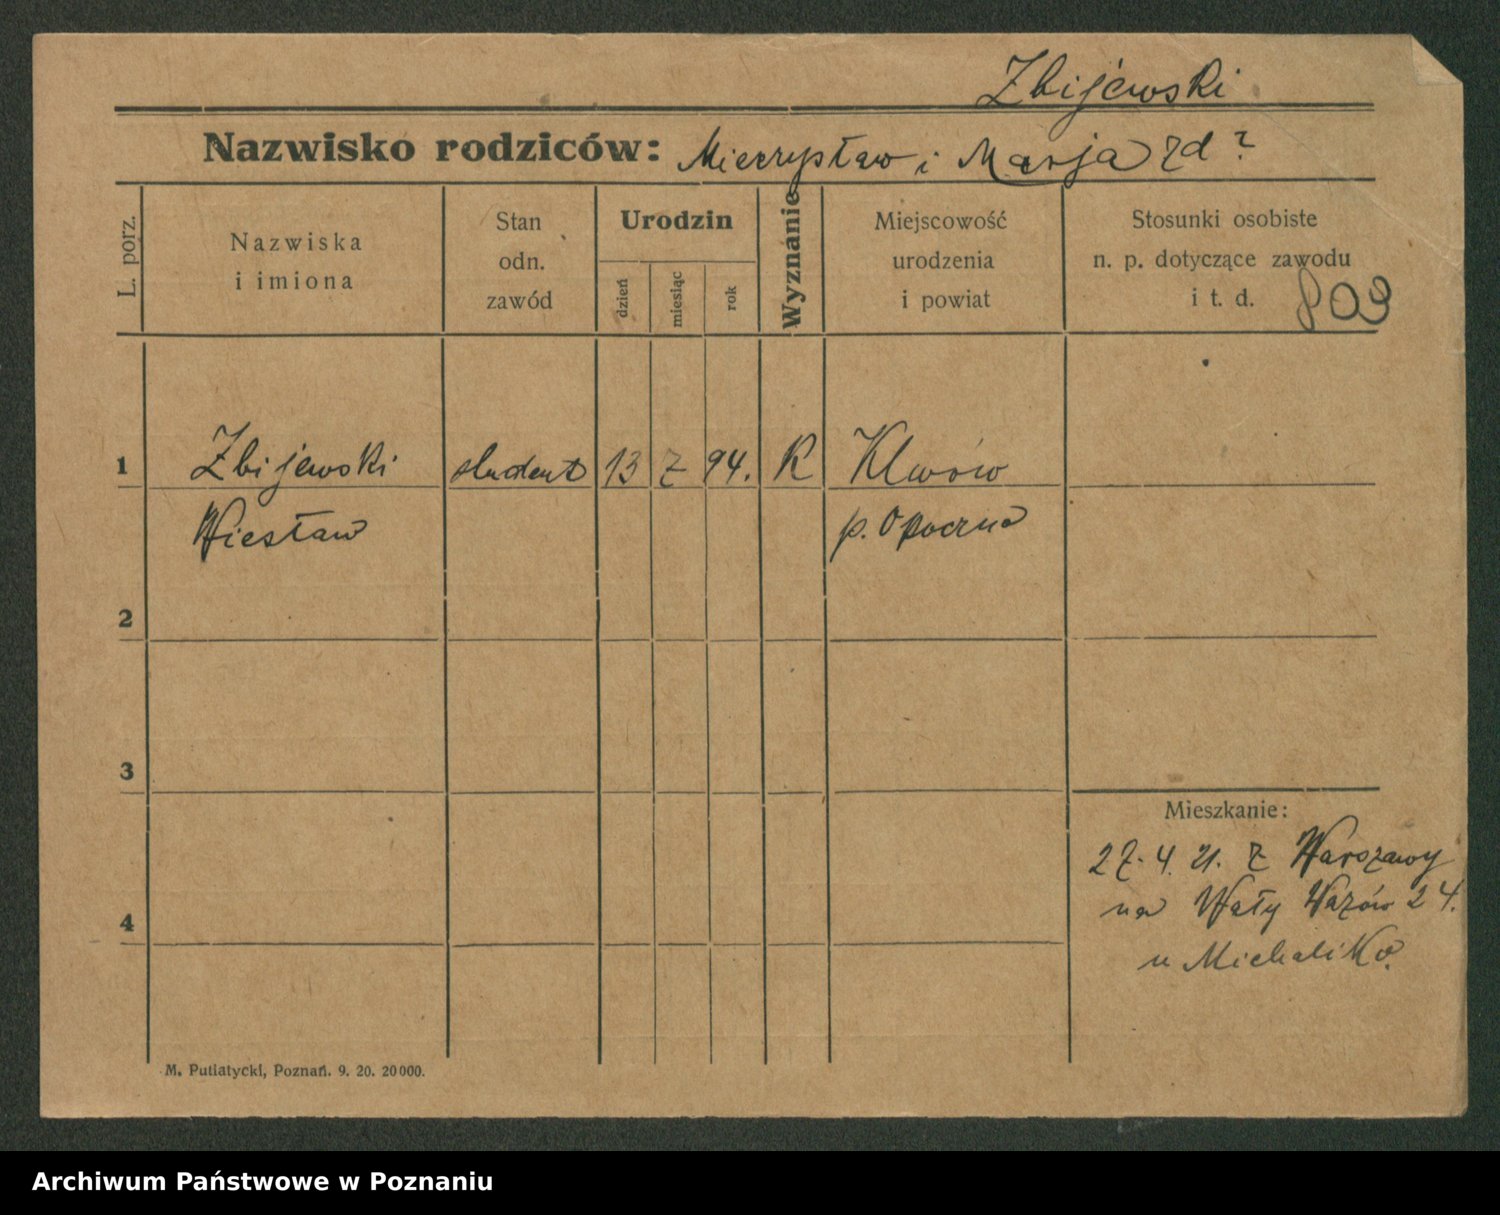 Zbijewski
Nazwisko rodziców: Mieczysław i Marja zd ?
L. porz.
Nazwiska
i imiona
Stan
odn.
zawód
Urodzin
dzień
miesiąc
rok
Wyznanie
Miejscowość
urodzenia
i powiat
Stosunki osobiste
n. p. dotyczące zawodu
i t. d.
809
1 Zbijewski student 13 7 94. R Klwów
Wiesław p. Opoczno
2
3
Mieszkanie:
27. 4. 21. z Warszawy
na Wały Wazów 24.
4
u Michalika.
M. Putiatycki, Poznań. 9. 20. 20000.
Archiwum Państwowe w Poznaniu